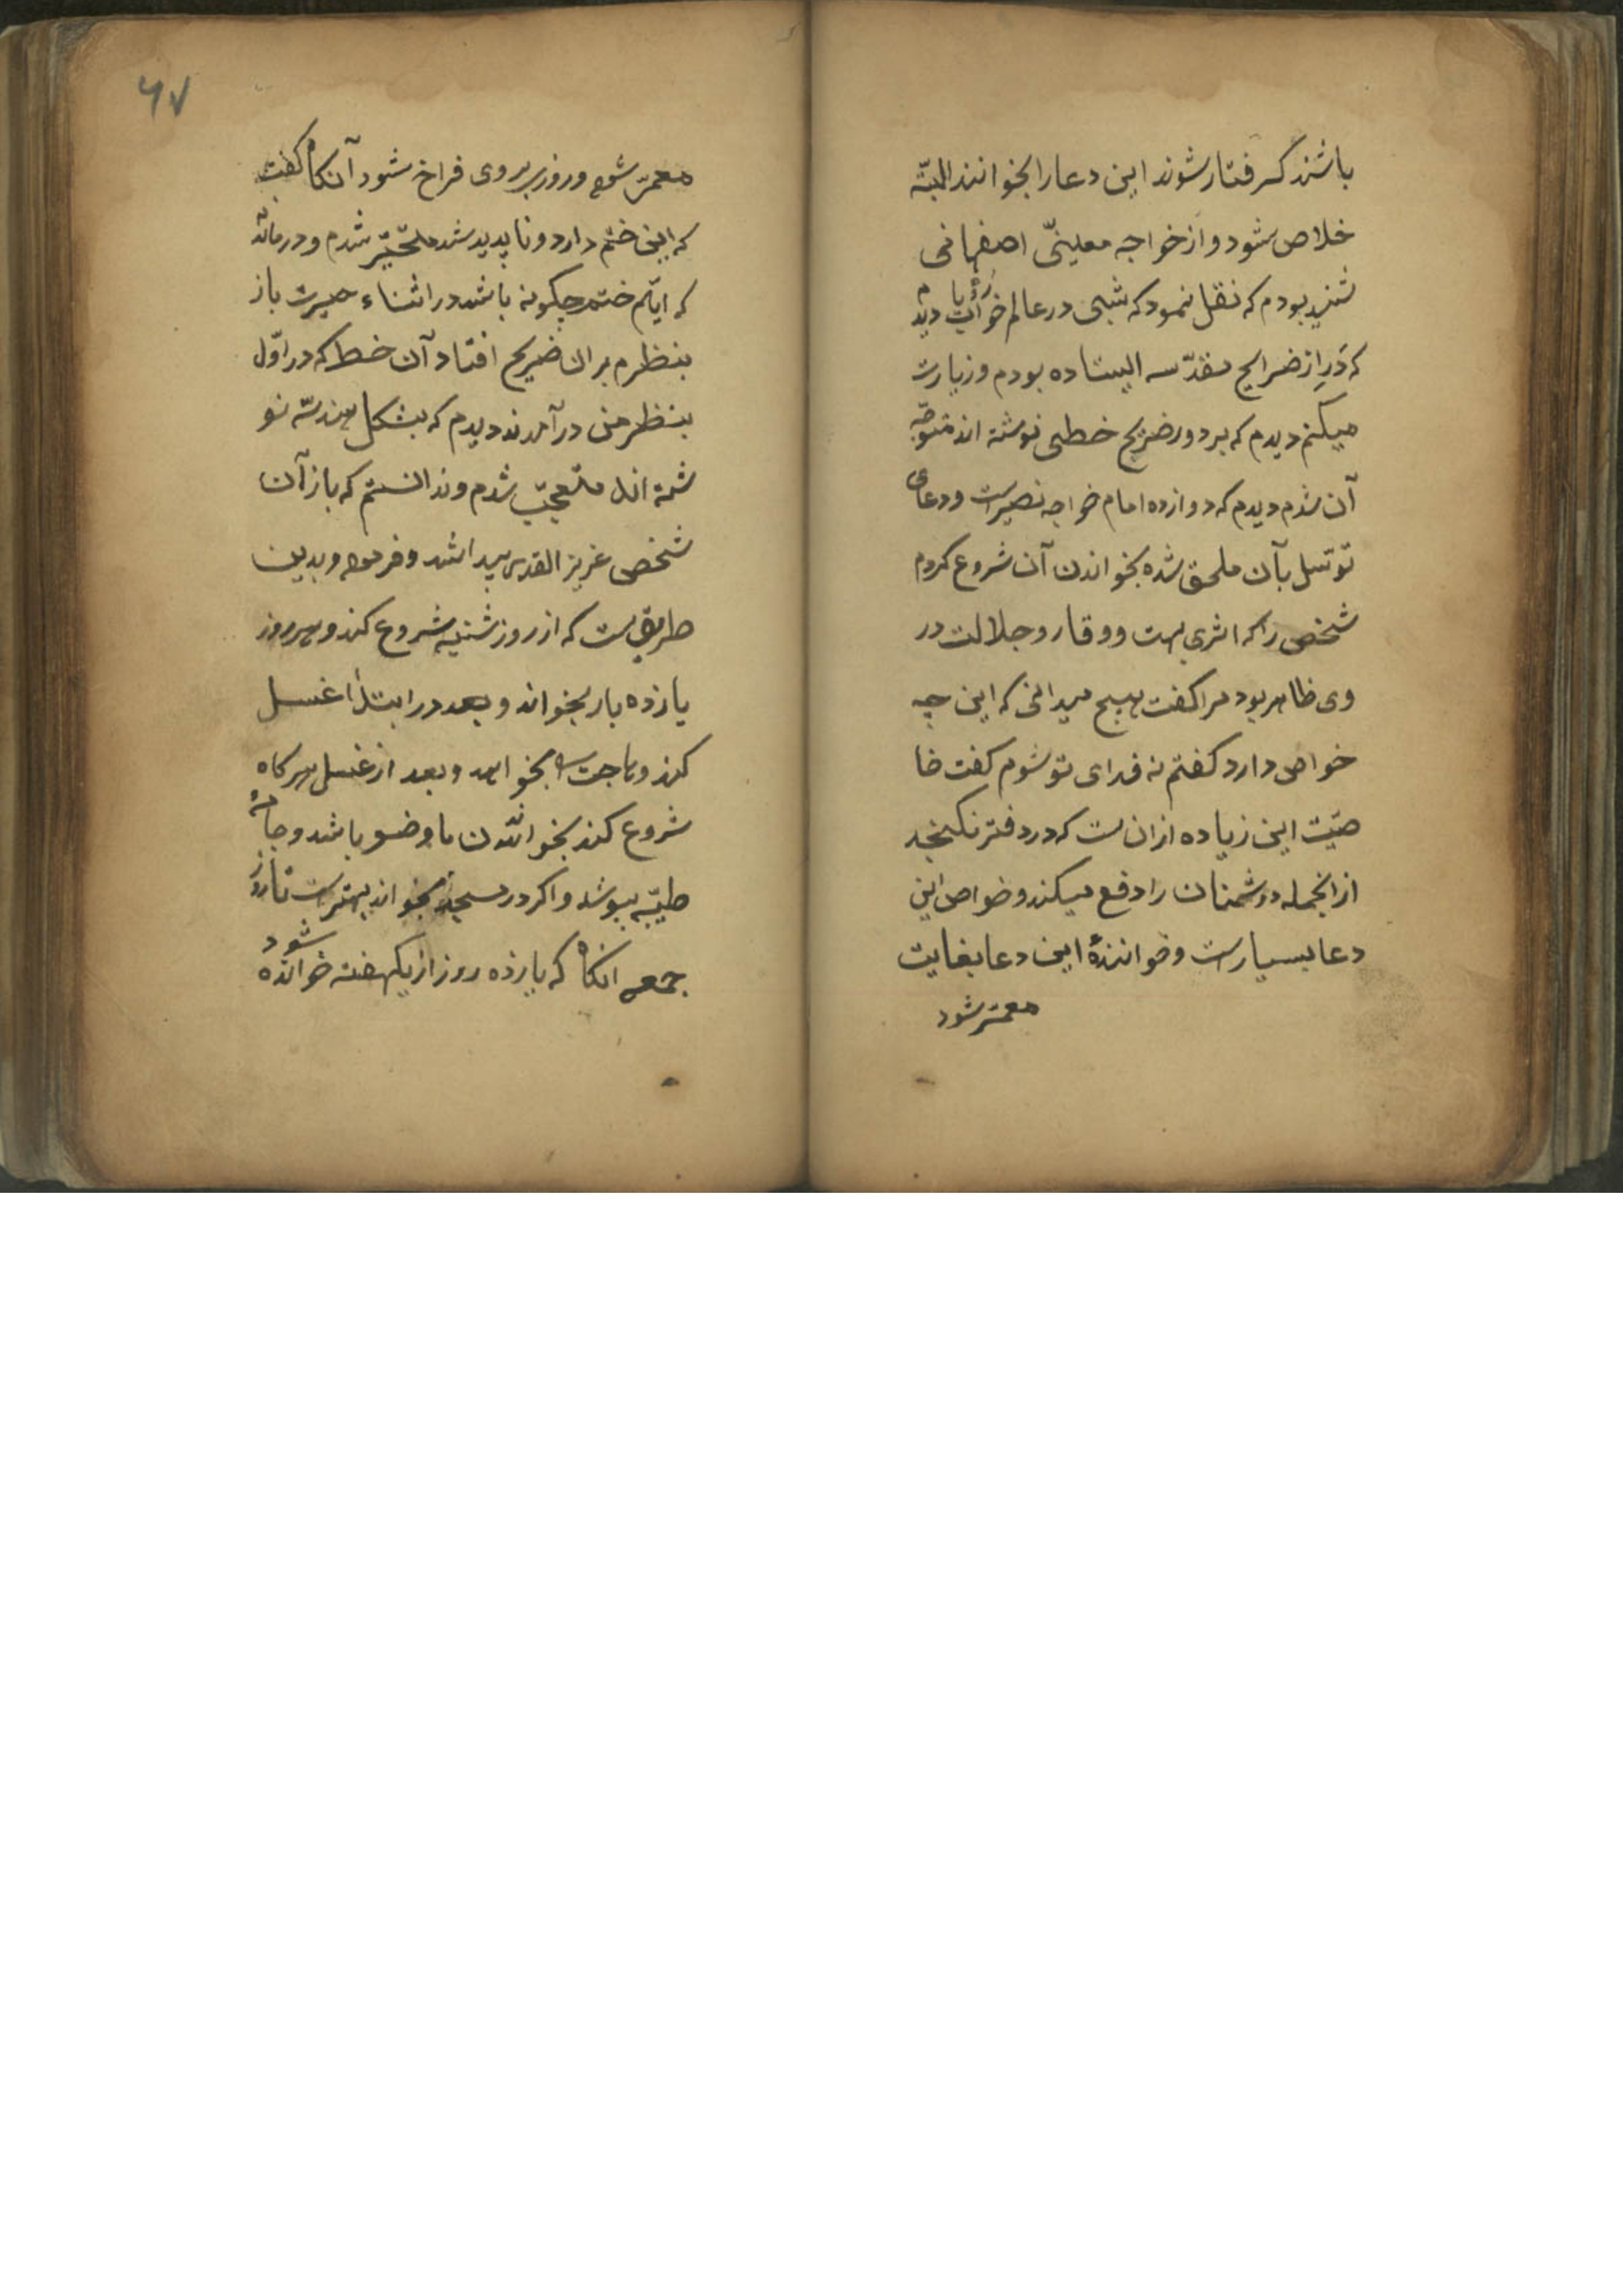 باشند گرفتار شوند این دعا را بخوانند البتّه
خلاص شود و از خواجه معینیّ اصفهانی
شنیده بودم که نقل نمود که شبی در عالم خواب دیدم
که در از ضرایح مقدّسه ایستاده بودم و زیارت
میکنم دیدم که بر دور ضریح خطی نوشته اند متوجّه
آن شدم دیدم که دوازده امام خواجه نصیرست و دعای
توسّل بآن ملحق شده بخواندن آن شروع کردم
شخصی را که اثر وقار و جلالت در
وی ظاهر بود مرا کفت هیچ میدانی که این چه
خواص دارد کفتم نه فدای تو شوم کفت خا
صیّت این زیاده از ان ست که در دفتر نکنجد
از انجمله دشمنان را دفع میکند و خواص این
دعا بسیارست و خوانندهٔ این دعا بغایت
معمّر شود
۶۷
معمّر شود و روزی بر وی فراخ شود آنکاه کفت
که این ختم دارد و ناپدید شد متحیّر شدم و درمانده
که ایّام ختم چکونه باشد در اثناء حیرت باز
بنظرم بر ان ضریح افتاد آن خط که در اوّل
بنظر من در آمدند دیدم که بشکل هندسه نو
شته اند متعجّب شدم و ندانستم که باز آن
شخص عزیز القدر پیدا شد و فرمود بدین
طریق ست که از روز شنبه شروع کند و هر روز
یازده بار بخواند و بعد در ابتدا غسل
کند و حاجت بخواهد و بعد از غسل هر کاه
شروع کند بخواندن با وضو باشد و جامهٔ
طیّبه بپوشد و اکر در مسجد بخواند بهترست تا روز
جمعه انکاه که یازده روز از یکهفته خوانده شود